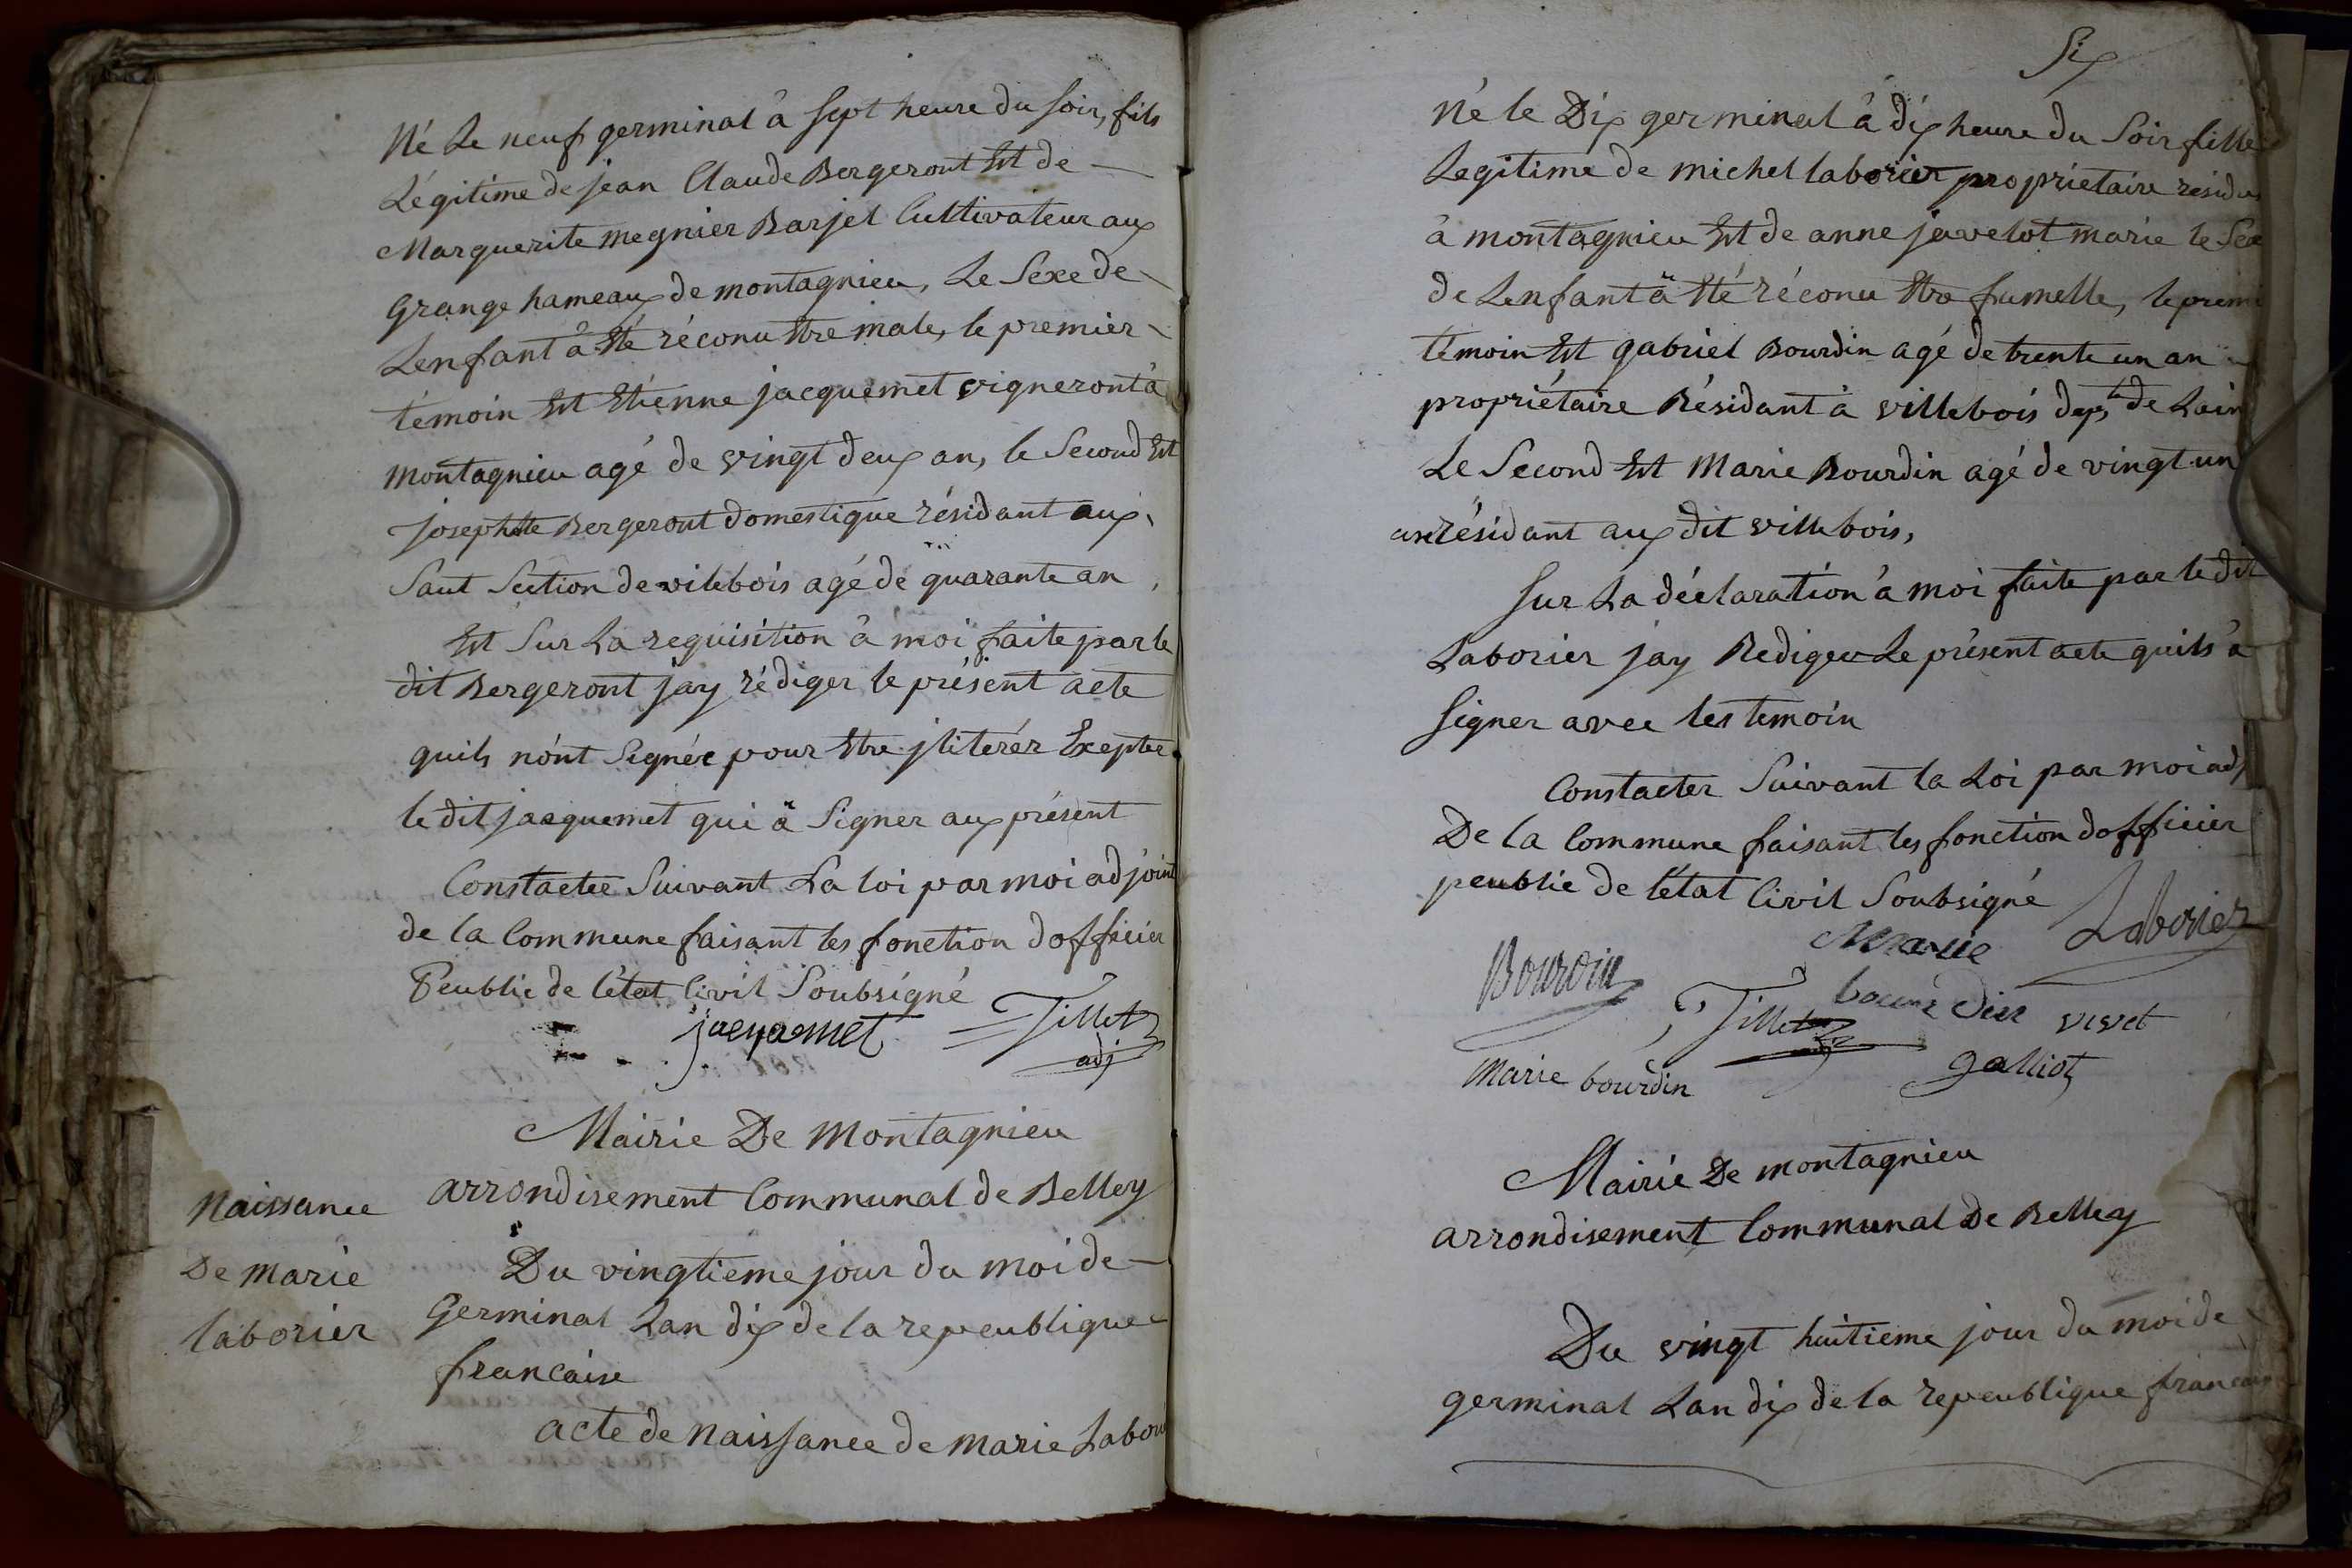 Né Le neuf germinal à sept heure du soir, fils
Légitime de jean Claude Bergeront Et de
Marguerite megnier Barjet Cultivateur aux
grange hameaux de montagnieu, Le Sexe de
Lenfant à Eté réconu Etre male, le premier
témoin Est Etienne jacquemet vigneront à
montagnieu agé de vingt deux an, le Second Est
josephte Bergeront domestique résidant aux
Saut Section de vilebois agé de quarante an
Et Sur La requisition à moi faite par le
dit Bergeront jay rédiger le présent acte
quils nont Signée pour Etre jliterér Exepter
le dit jacquemet qui à Signer aux présent
Constatee Suivant La loi par moi adjoint
de la Commune faisant les fonction dofficier
Peublic de létat Civil Soubsigné
jacquemet Tillet
adj
Mairie De Montagnieu
arrondisement Communal de Belley
Naissance
De marie
laborier
Du vingtieme jour du moi de
Germinal Lan dix de la repeublique
francaise
acte de naissance de marie Labori
Six
Né le Dix germinal à dix heure du Soir fille
Legitime de michel laborier proprietaire résida
à montagnieu Et de anne javelot marie le Sex
de Lenfant à Eté réconu Etre fumelle, le premi
témoin Est gabriel Bourdin agé de trente un an
propriétaire Résidant à villebois dept de Lain
Le Second Est Marie Bourdin agé de vingt un
an résidant aux dit villebois,
Sur La déclaration à moi faite par le dit
Laborier jay Rediger Le présent acte quils à
Signer avec les temoin
Constater Suivant la Loi par moi adj
De la Commune faisant les fonction dofficier
peublic de létat Civil Soubsigné
Bourdin Marie Laborier
Tillet vivet
Marie bourdin galliot
Mairie De montagnieu
arrondisement Communal De Belley
Du vingt huitieme jour du moi de
germinal Lan dix de la repeublique francaise